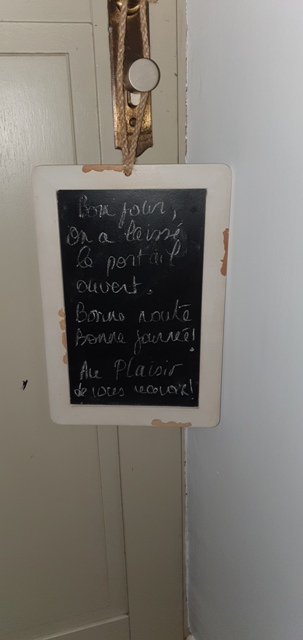 Bon jour,
on a laissé
le portail
ouvert.
Bonne route
Bonne journée!
Au Plaisir
de vous recevoir!